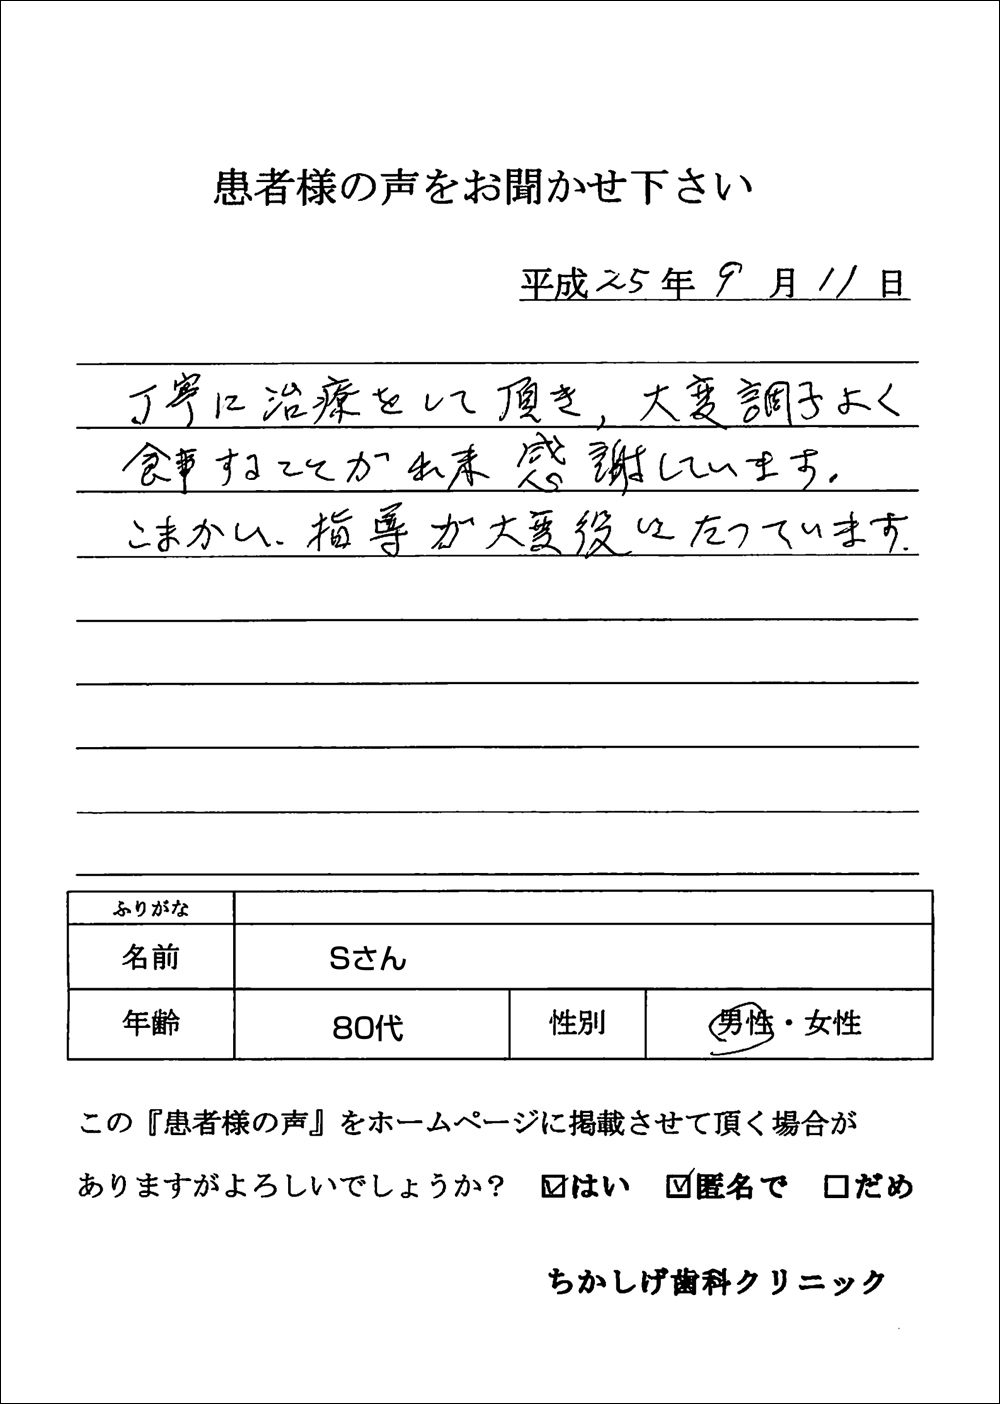 患者様の声をお聞かせ下さい
平成25年 9月11日
丁寧に治療をして頂き、大変調子よく
食事することがれ来 感謝しています。
こまかい、指導が大変役にたっています。
ふりがな
名前 Sさん
年齢 80代 性別 男性・女性
この『患者様の声』をホームページに掲載させて頂く場合が
ありますがよろしいでしょうか? ☑はい ☑匿名で □だめ
ちかしげ歯科クリニック